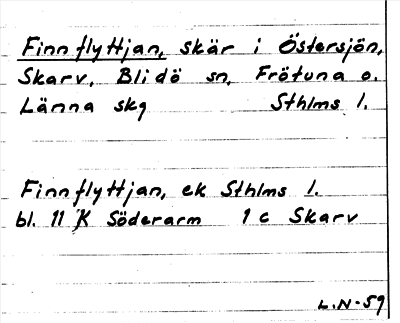 Finnflyttjan, skär i Östersjön,
Skarv, Blidö sn, Frötuna o.
Länna skg Sthlms l.
Finnflyttjan, ek Sthlms l.
bl. 11 K Söderarm 1 c Skarv
L.N-59